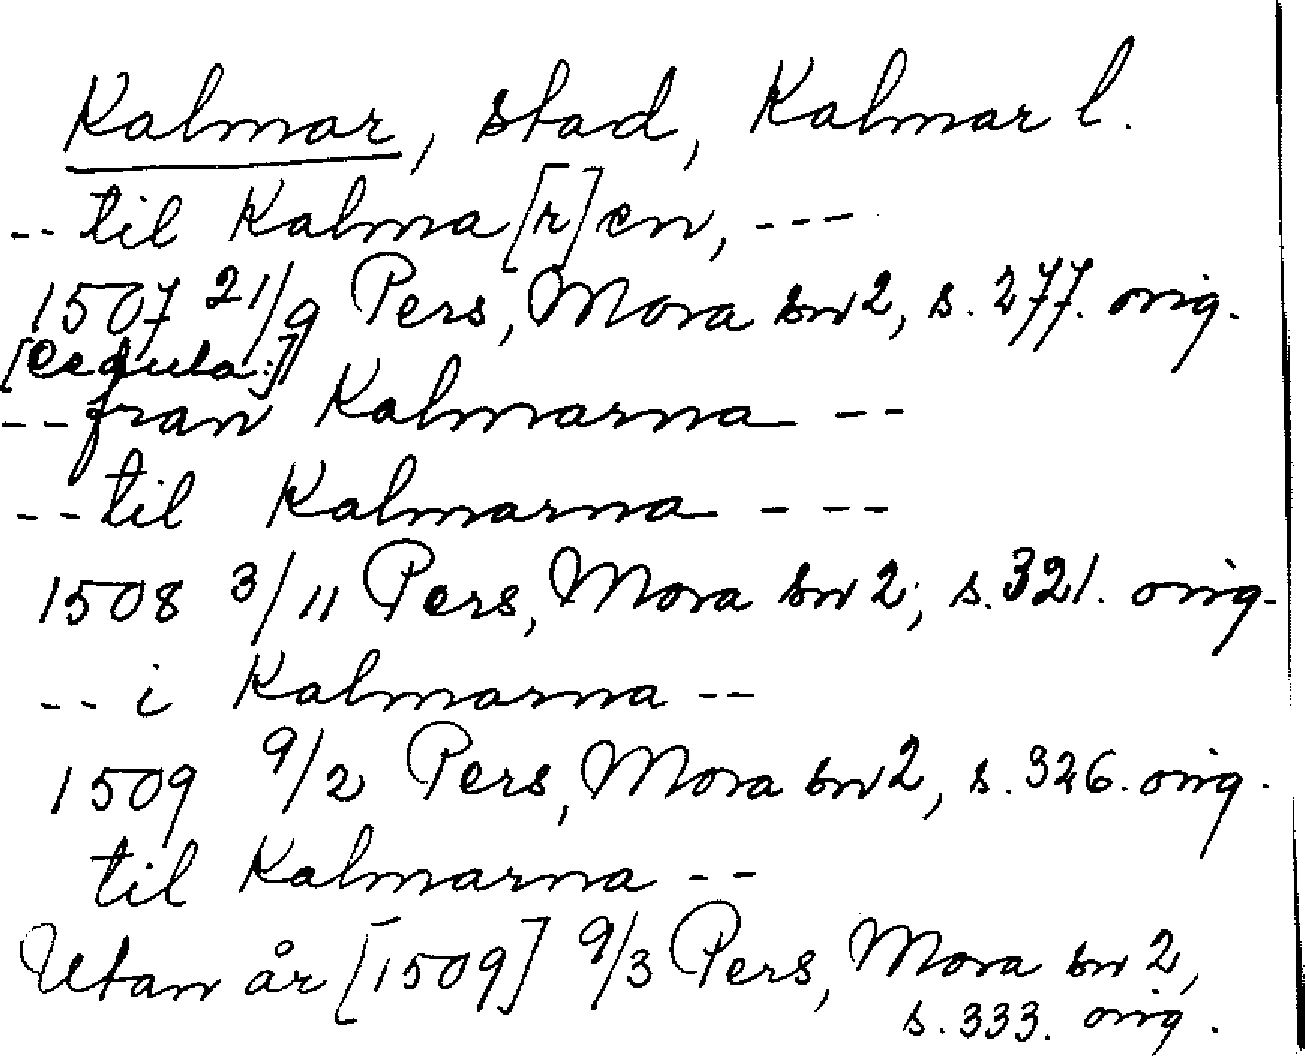 Kalmar, stad, Kalmar l.
-- til Kalma[r]en, ---
1507 21/9 Pers, Mora bn 2, s. 277. orig.
[Cedula:]
-- fran Kalmarna --
-- til Kalmarna ---
1508 3/11 Pers, Mora bn 2, s. 321. orig.
-- i Kalmarna --
1509 9/2 Pers, Mora bn 2, s. 326. orig.
til Kalmarna --
Utan år [1509] 9/3 Pers, Mora bn 2,
s. 333. orig.